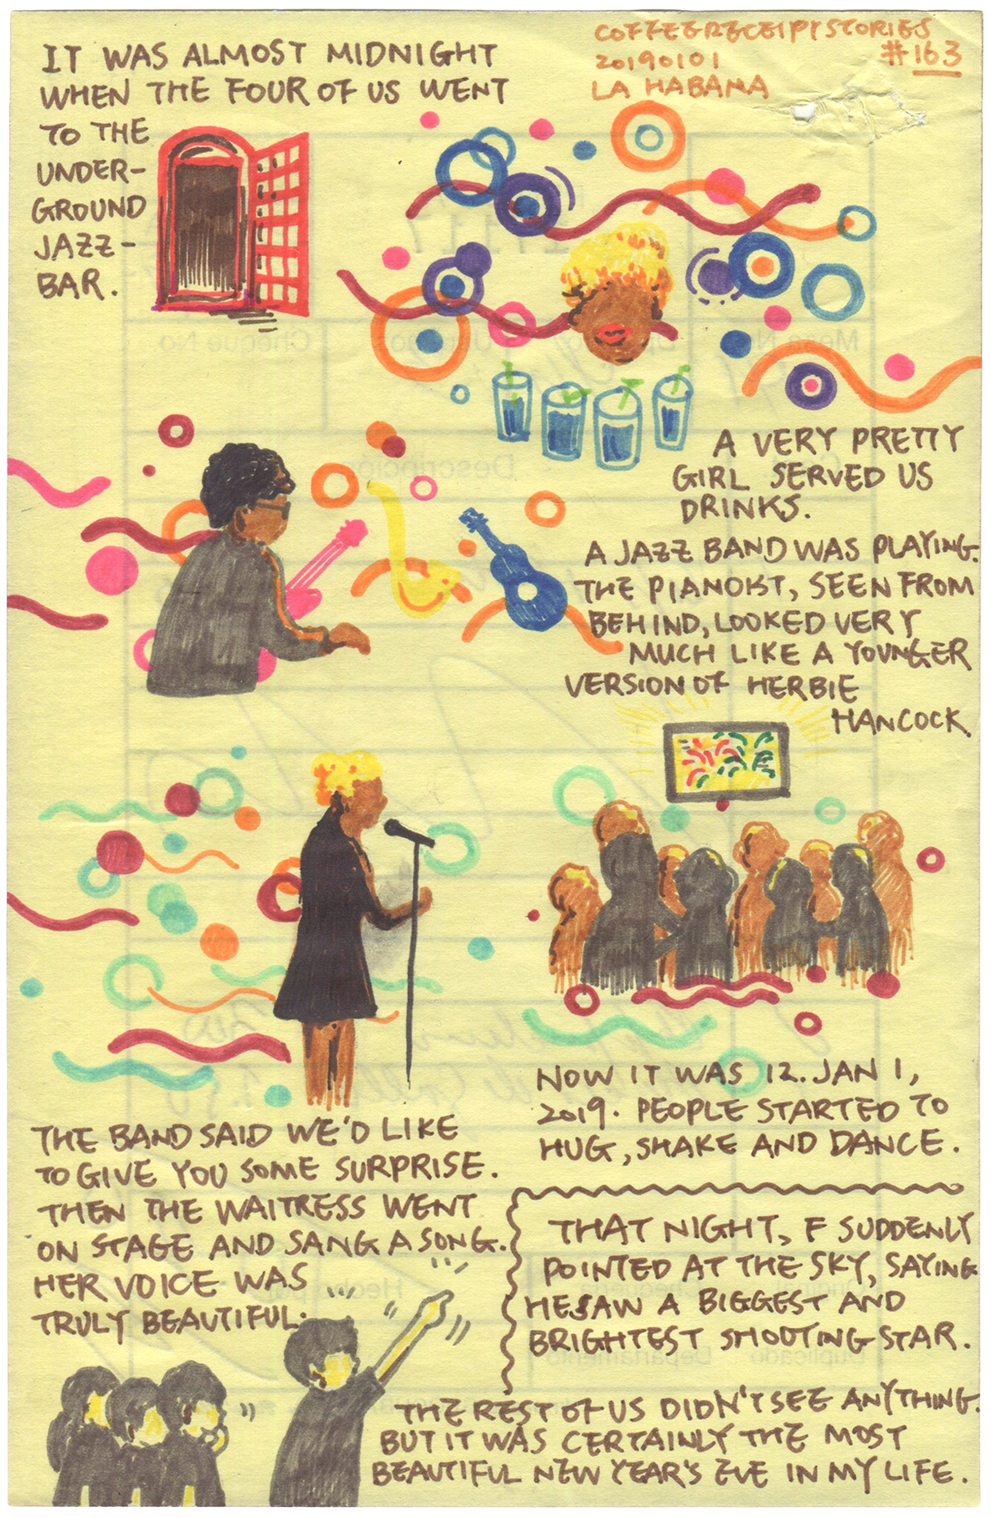 COFFEERECEIPTSTORIES
20190101
#163
LA HABANA
IT WAS ALMOST MIDNIGHT
WHEN THE FOUR OF US WENT
TO THE
UNDER-
GROUND
JAZZ-
BAR.
A VERY PRETTY
GIRL SERVED US
DRINKS.
A JAZZ BAND WAS PLAYING.
THE PIANOIST, SEEN FROM
BEHIND, LOOKED VERY
MUCH LIKE A YOUNGER
VERSION OF HERBIE
HANCOCK
THE BAND SAID WE'D LIKE
TO GIVE YOU SOME SURPRISE.
THEN THE WAITRESS WENT
ON STAGE AND SANG A SONG.
HER VOICE WAS
TRULY BEAUTIFUL.
NOW IT WAS 12. JAN 1,
2019. PEOPLE STARTED TO
HUG, SHAKE AND DANCE.
THAT NIGHT, F SUDDENLY
POINTED AT THE SKY, SAYING
HE SAW A BIGGEST AND
BRIGHTEST SHOOTING STAR.
THE REST OF US DIDN'T SEE ANYTHING.
BUT IT WAS CERTAINLY THE MOST
BEAUTIFUL NEW YEAR'S EVE IN MY LIFE.